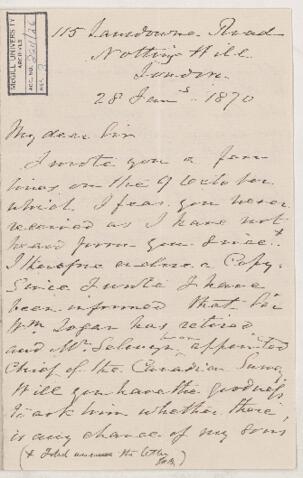 McGILL UNIVERSITY
ARCHIVES
ACC. NO.
REF.
115 Lansdowne Road
Notting Hill
London
28 Jany 1870
My dear Sir
I wrote you a few
lines on the 9 October
which I fear you never
received as I have not
heard from you since +
I therefore enclose a Copy.
Since I wrote I have
been informed that Sir
Wm Logan has retired
and Mr. Selwyn been appointed
Chief of the Canadian Survey
Will you have the goodness
to ask him whether there
is any chance of my sons
(+ I did receive the letter